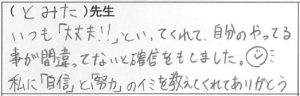 (とみた)先生
いつも「大丈夫!!」といってくれて、自分のやってる
事が間違ってないと確信をもしました。
私に「自信」と「努力」のイミを教えてくれてありがとう